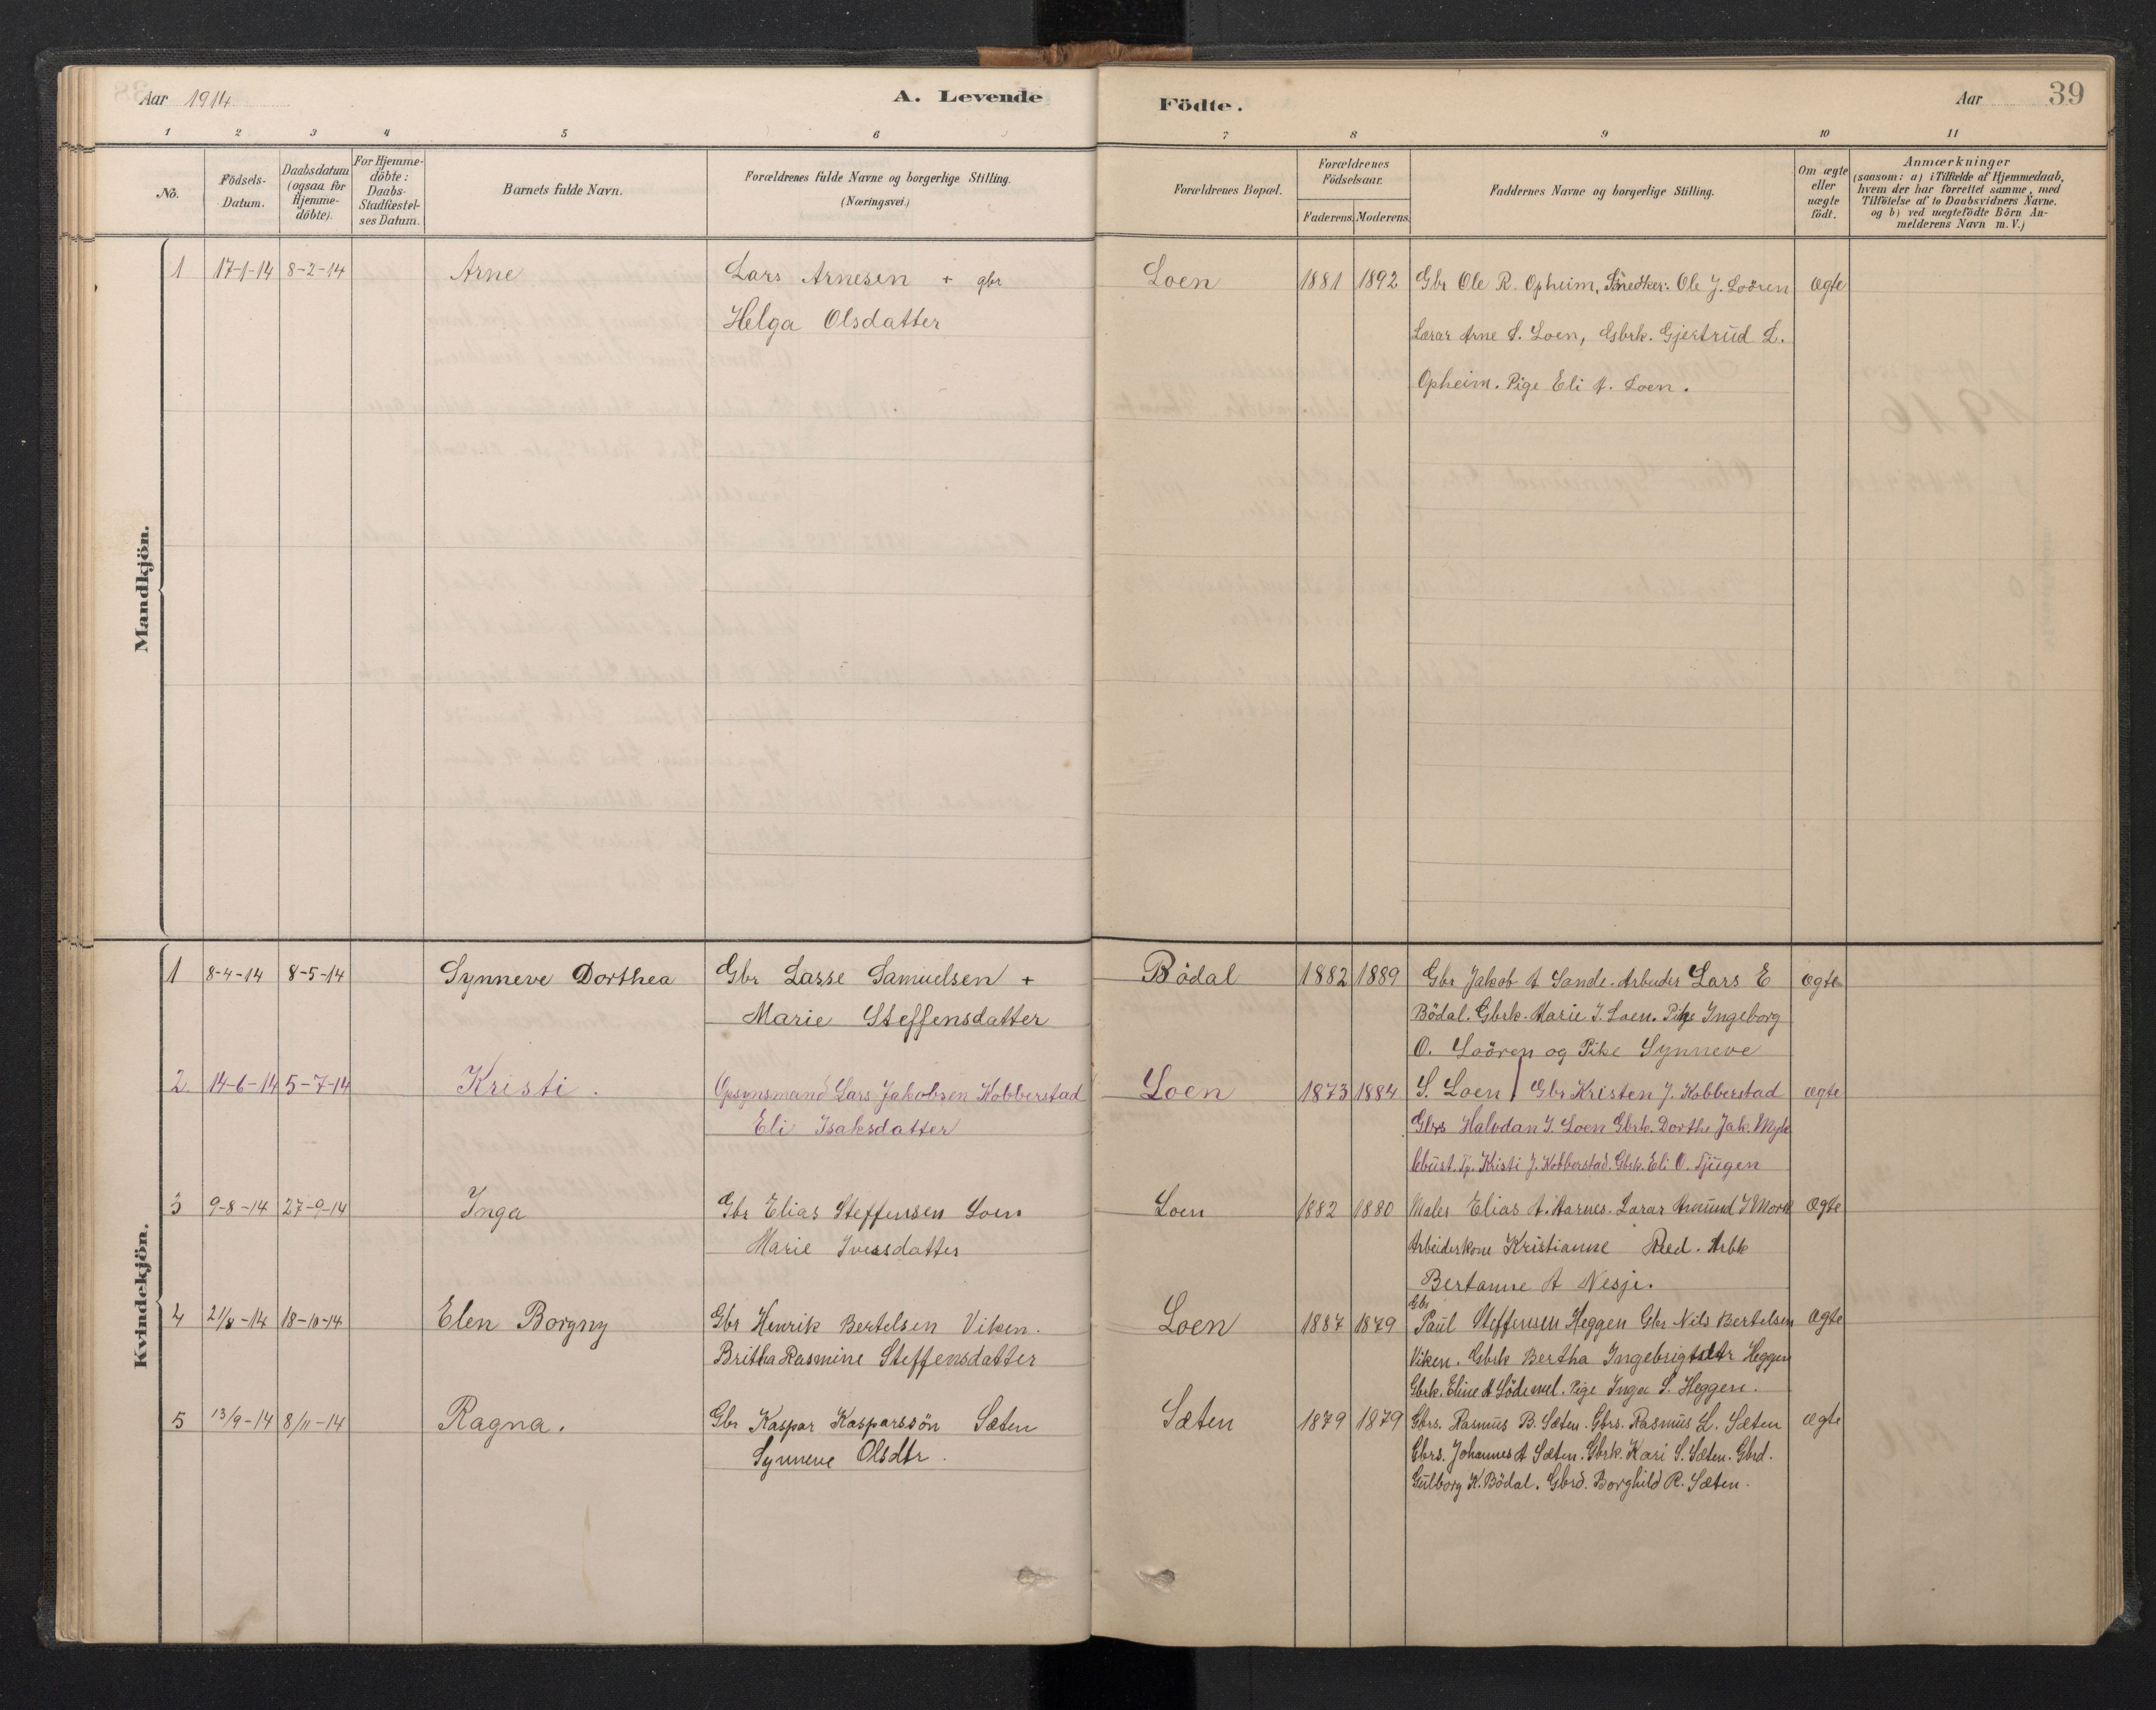 Aar 1914
A. Levende
Födte.
Aar
39
1 2 3 4 5 6 7 8 9 10 11
No.
Födsels-
Datum.
Daabsdatum
(ogsaa for
Hjemme-
döbte).
For Hjemme-
döbte:
Daabs-
Stadfæstel-
ses Datum.
Barnets fulde Navn.
Forældrenes fulde Navne og borgerlige Stilling.
(Næringsvei.)
Forældrenes Bopæl.
Forældrenes
Födselsaar.
Faderens. Moderens.
Faddernes Navne og borgerlige Stilling.
Om ægte
eller
uægte
födt.
Anmærkninger
(saasom: a) i Tilfælde af Hjemmedaab,
hvem der har forrettet samme, med
Tilföielse af to Daabsvidners Navne.
og b) ved uægtefödte Börn An-
melderens Navn m. V.)
Mandkjön.
1 17-1-14 8-2-14 Arne Lars Arnesen + gbr Loen 1881 1892 Gbr Ole R. Opheim, Snedker Ole J. Loören ægte
Helga Olsdatter Lærar Arne S. Loen, Gbrk. Gjertrud L.
Opheim. Pige Eli A. Loen.
Kvindekjön.
1 8-4-14 8-5-14 Synneve Dorthea Gbr Lasse Samuelsen + Bödal 1882 1889 Gbr Jakob A Sande. Arbeider Lars E ægte
Marie Steffensdatter Bödal. Gbrk. Marie J. Loen. Pike Ingeborg
O. Loören og Pike Synneve
2. 14-6-14 5-7-14 Kristi. Opsynsmand Lars Jakobsen Kobberstad Loen 1873 1884 S. Loen / Gbr Kristen J. Kobberstad ægte
Eli Isaksdatter Gbrs Halvdan J. Loen Gbrk. Dorthe Jak. Mykle
bust. Tj. Kristi J. Kobberstad. Gbrk. Eli O. Tjugen
3 9-8-14 27-9-14 Inga Gbr Elias Steffensen Loen Loen 1882 1880 Maler Elias A. Aarnes. Lærar Amund J Mork ægte
Marie Iversdatter Arbeiderkone Kristianne Ræd. Arbk
Bertanne A Nesje.
4 21/8-14 18-10-14 Elen Borgny Gbr Henrik Bertelsen Viken. Loen 1887 1879 Gbr Paul Steffensen Heggen Gbr Nils Bertelsen ægte
Britha Rasmine Steffensdatter Viken. Gbrk Bertha Ingebrigtsdtr Heggen
Gbrk. Eline A Södemel. Pige Inga S. Heggen.
5 13/9-14 8/11-14 Ragna. Gbr Kaspar Kasparssön Sæten Sæten 1879 1879 Gbrs. Rasmus B. Sæten. Gbrs. Rasmus L. Sæten ægte
Synneve Olsdtr. Gbrs. Johannes A Sæten. Gbrk. Kari S. Sæten. Gbrd.
Gulborg K. Bödal. Gbrd. Borghild R. Sæten.